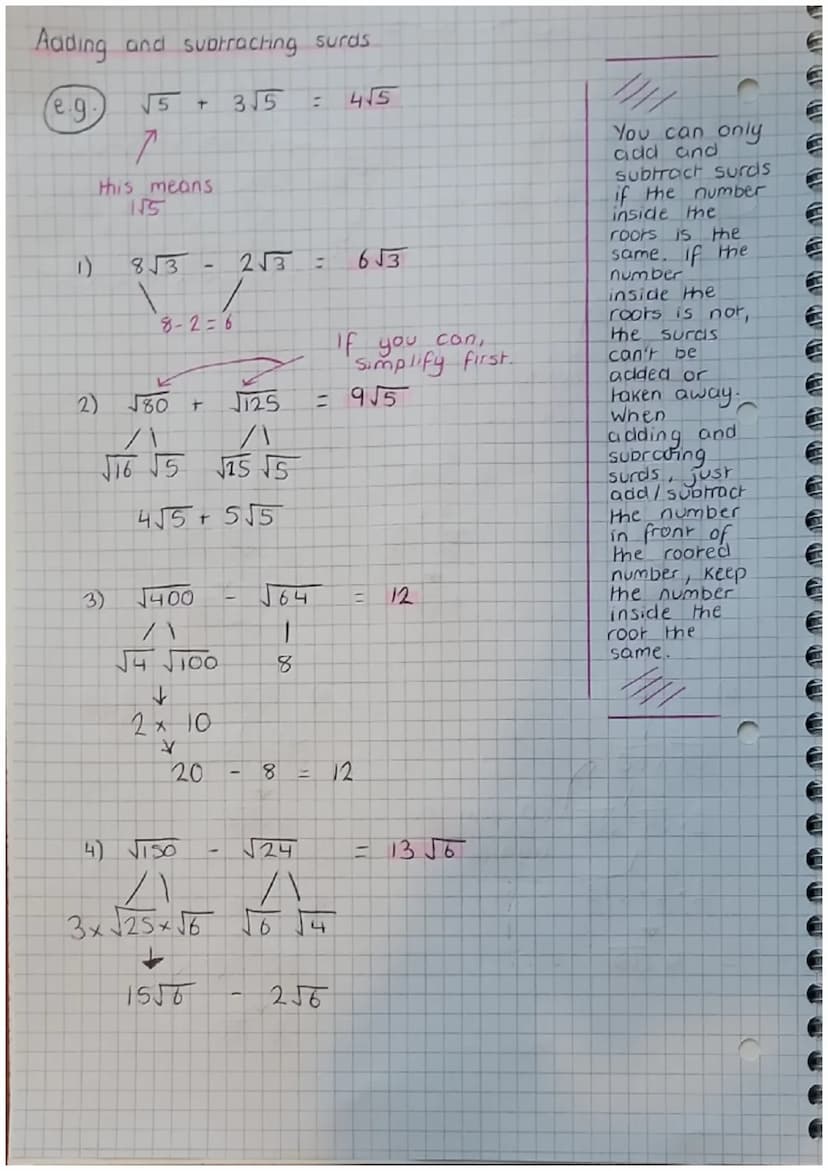 Adding and subtracting surds
e.g. √5 + 3√5 = 4√5
this means
1√5
1) 8√3 - 2√3 = 6√3
8-2=6
If you can,
simplify first.
2) √80 + √125 = 9√5
√16 √5 √25 √5
4√5 + 5√5
3) √400 - √64 = 12
√4 √100 8
2 × 10
20 - 8 = 12
4) √150 - √24 = 13√6
3×√25×√6 √6 √4
15√6 - 2√6
You can only
add and
subtract surds
if the number
inside the
roots is the
same. if the
number
inside the
roots is not,
the surds
can't be
added or
taken away.
When
adding and
subrating
surds, just
add/subtract
the number
in front of
the rooted
number, keep
the number
inside the
root the
same.